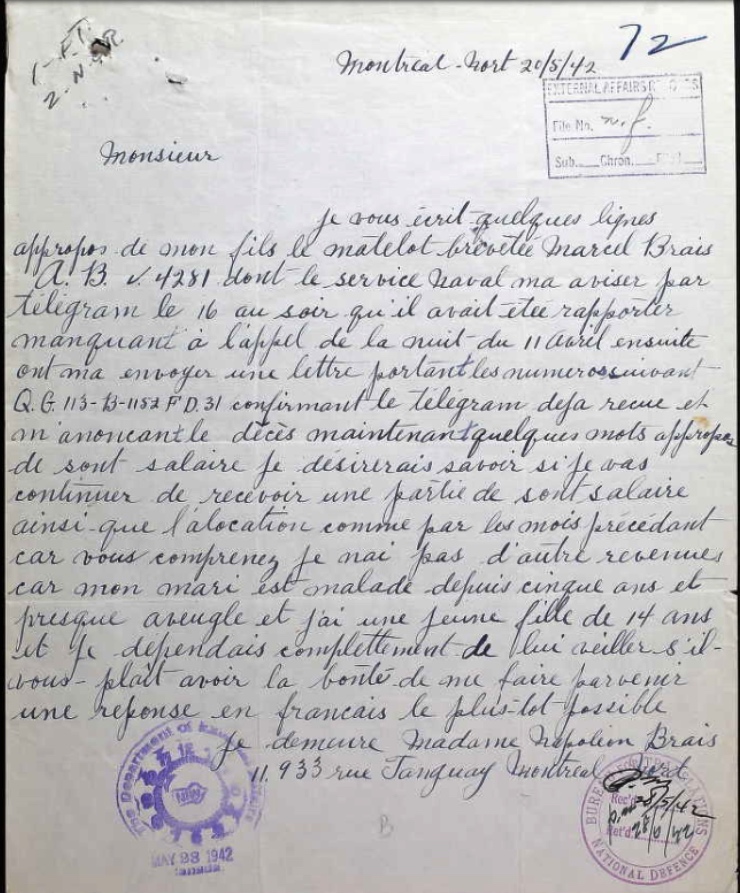 1 - F.T.
2 - N.S.R.
72
Montreal-Nort 20/5/42
EXTERNAL AFFAIRS
File No. n.f.
Sub. Chron. Fil
Monsieur
je vous écrit quelques lignes
appropos de mon fils le matelot brevetée Marcel Brais
A. B. V. 4281 dont le service Naval ma aviser par
télégram le 16 au soir qu'il avait étée rapporter
manquant à l'appel de la nuit du 11 Avril ensuite
ont ma envoyer une lettre portant les numeros suivant
Q. G. 113-B-1152 F D. 31 confirmant le télégram deja recue et
m'anoncant le décès maintenant quelques mots appropos
de sont salaire je désirerais savoir si je vas
continuer de recevoir une partie de sont salaire
ainsi-que l'alocation comme par les mois précédant
car vous comprenez je nai pas d'autre revenues
car mon mari est malade depuis cinque ans et
presque aveugle et j'ai une jeune fille de 14 ans
et je dépendais complettement de lui veiller s'il-
vous-plaît avoir la bonté de me faire parvenir
une réponse en francais le plus-tot possible
je demeure Madame Napoléon Brais
11.933 rue Tanguay Montreal Nord
The Department of External Affairs
MAY 23 1942
BUREAU FOR TRANSLATIONS
NATIONAL DEFENCE
Rec'd 28/5/42
Ret'd 28/5/42
B